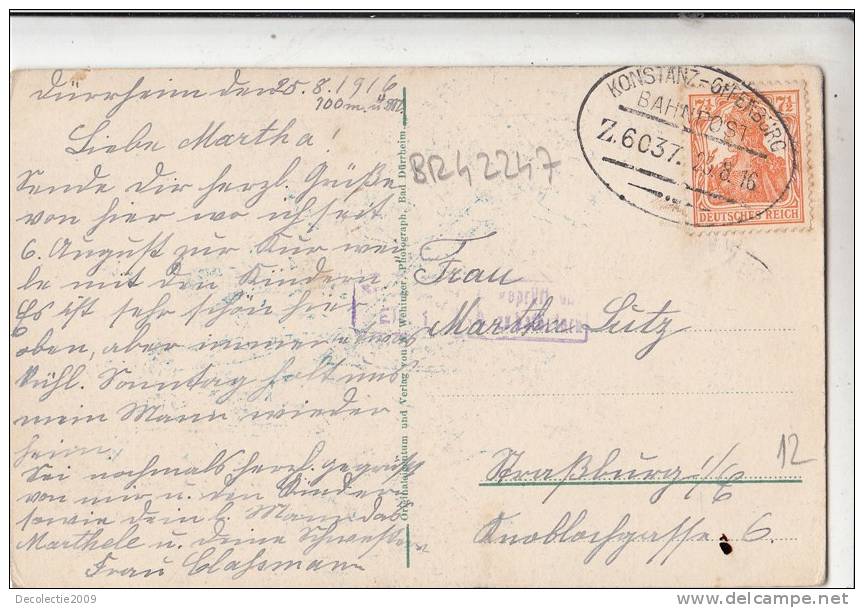 Dürrheim den 25.8.1916
700 m. ü. M.
Liebe Martha!
Sende Dir herzl. Grüße
von hier wo ich seit
6. August zur Kur wei-
le mit den Kindern.
Es ist sehr schön hier
oben, aber immer etwas
kühl. Sonntag holt uns
mein Mann wieder
heim.
Sei nochmals herzl. gegrüßt
von mir u. den Kindern
sowie dein l. Mann das
Marthele u. deine Schwester
Frau Classmann
Originaleigentum und Verlag von Wehinger, Photograph, Bad Dürrheim
BR42247
KONSTANZ-OFFENBURG
BAHNPOST
Z.6037. 25.8.16
7½ 7½
DEUTSCHES REICH
Frau
Martha Lutz
Straßburg i/E
Knoblochgasse 6.
12
Decolectie2009
www.delcampe.net